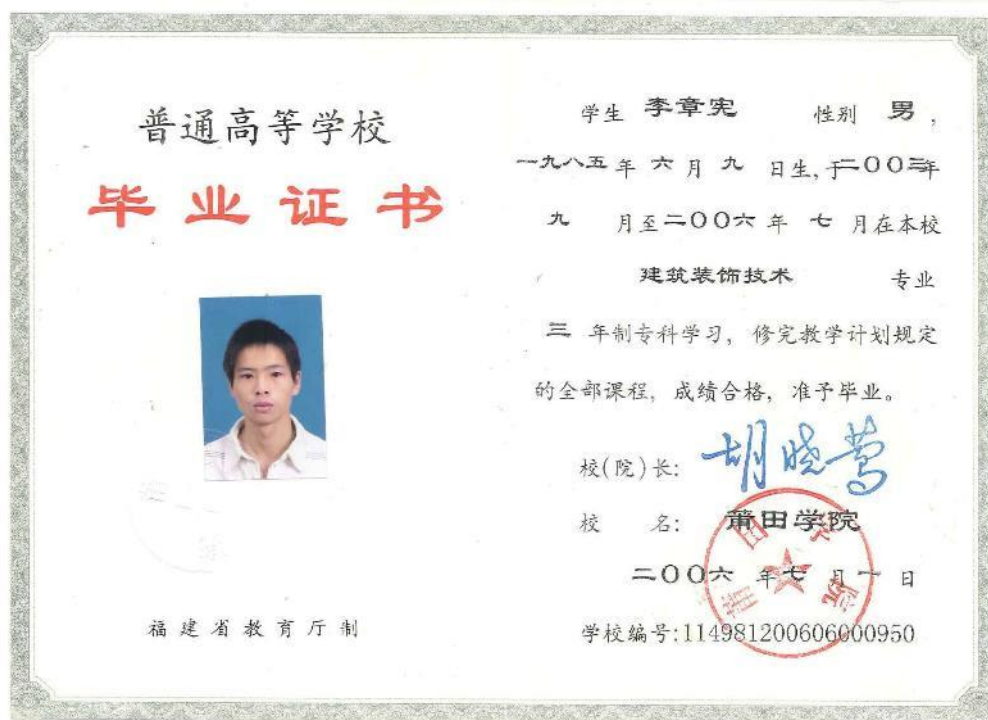 普通高等学校
毕业证书
福建省教育厅制
学生 李章宪 性别 男,
一九八五年 六 月 九 日生,于二〇〇三年
九 月至二〇〇六年 七 月在本校
建筑装饰技术 专业
三 年制专科学习, 修完教学计划规定
的全部课程, 成绩合格, 准予毕业。
校(院)长: 胡晓莺
校 名: 莆田学院
二〇〇六 年七 月一 日
学校编号:114981200606000950
莆田学院